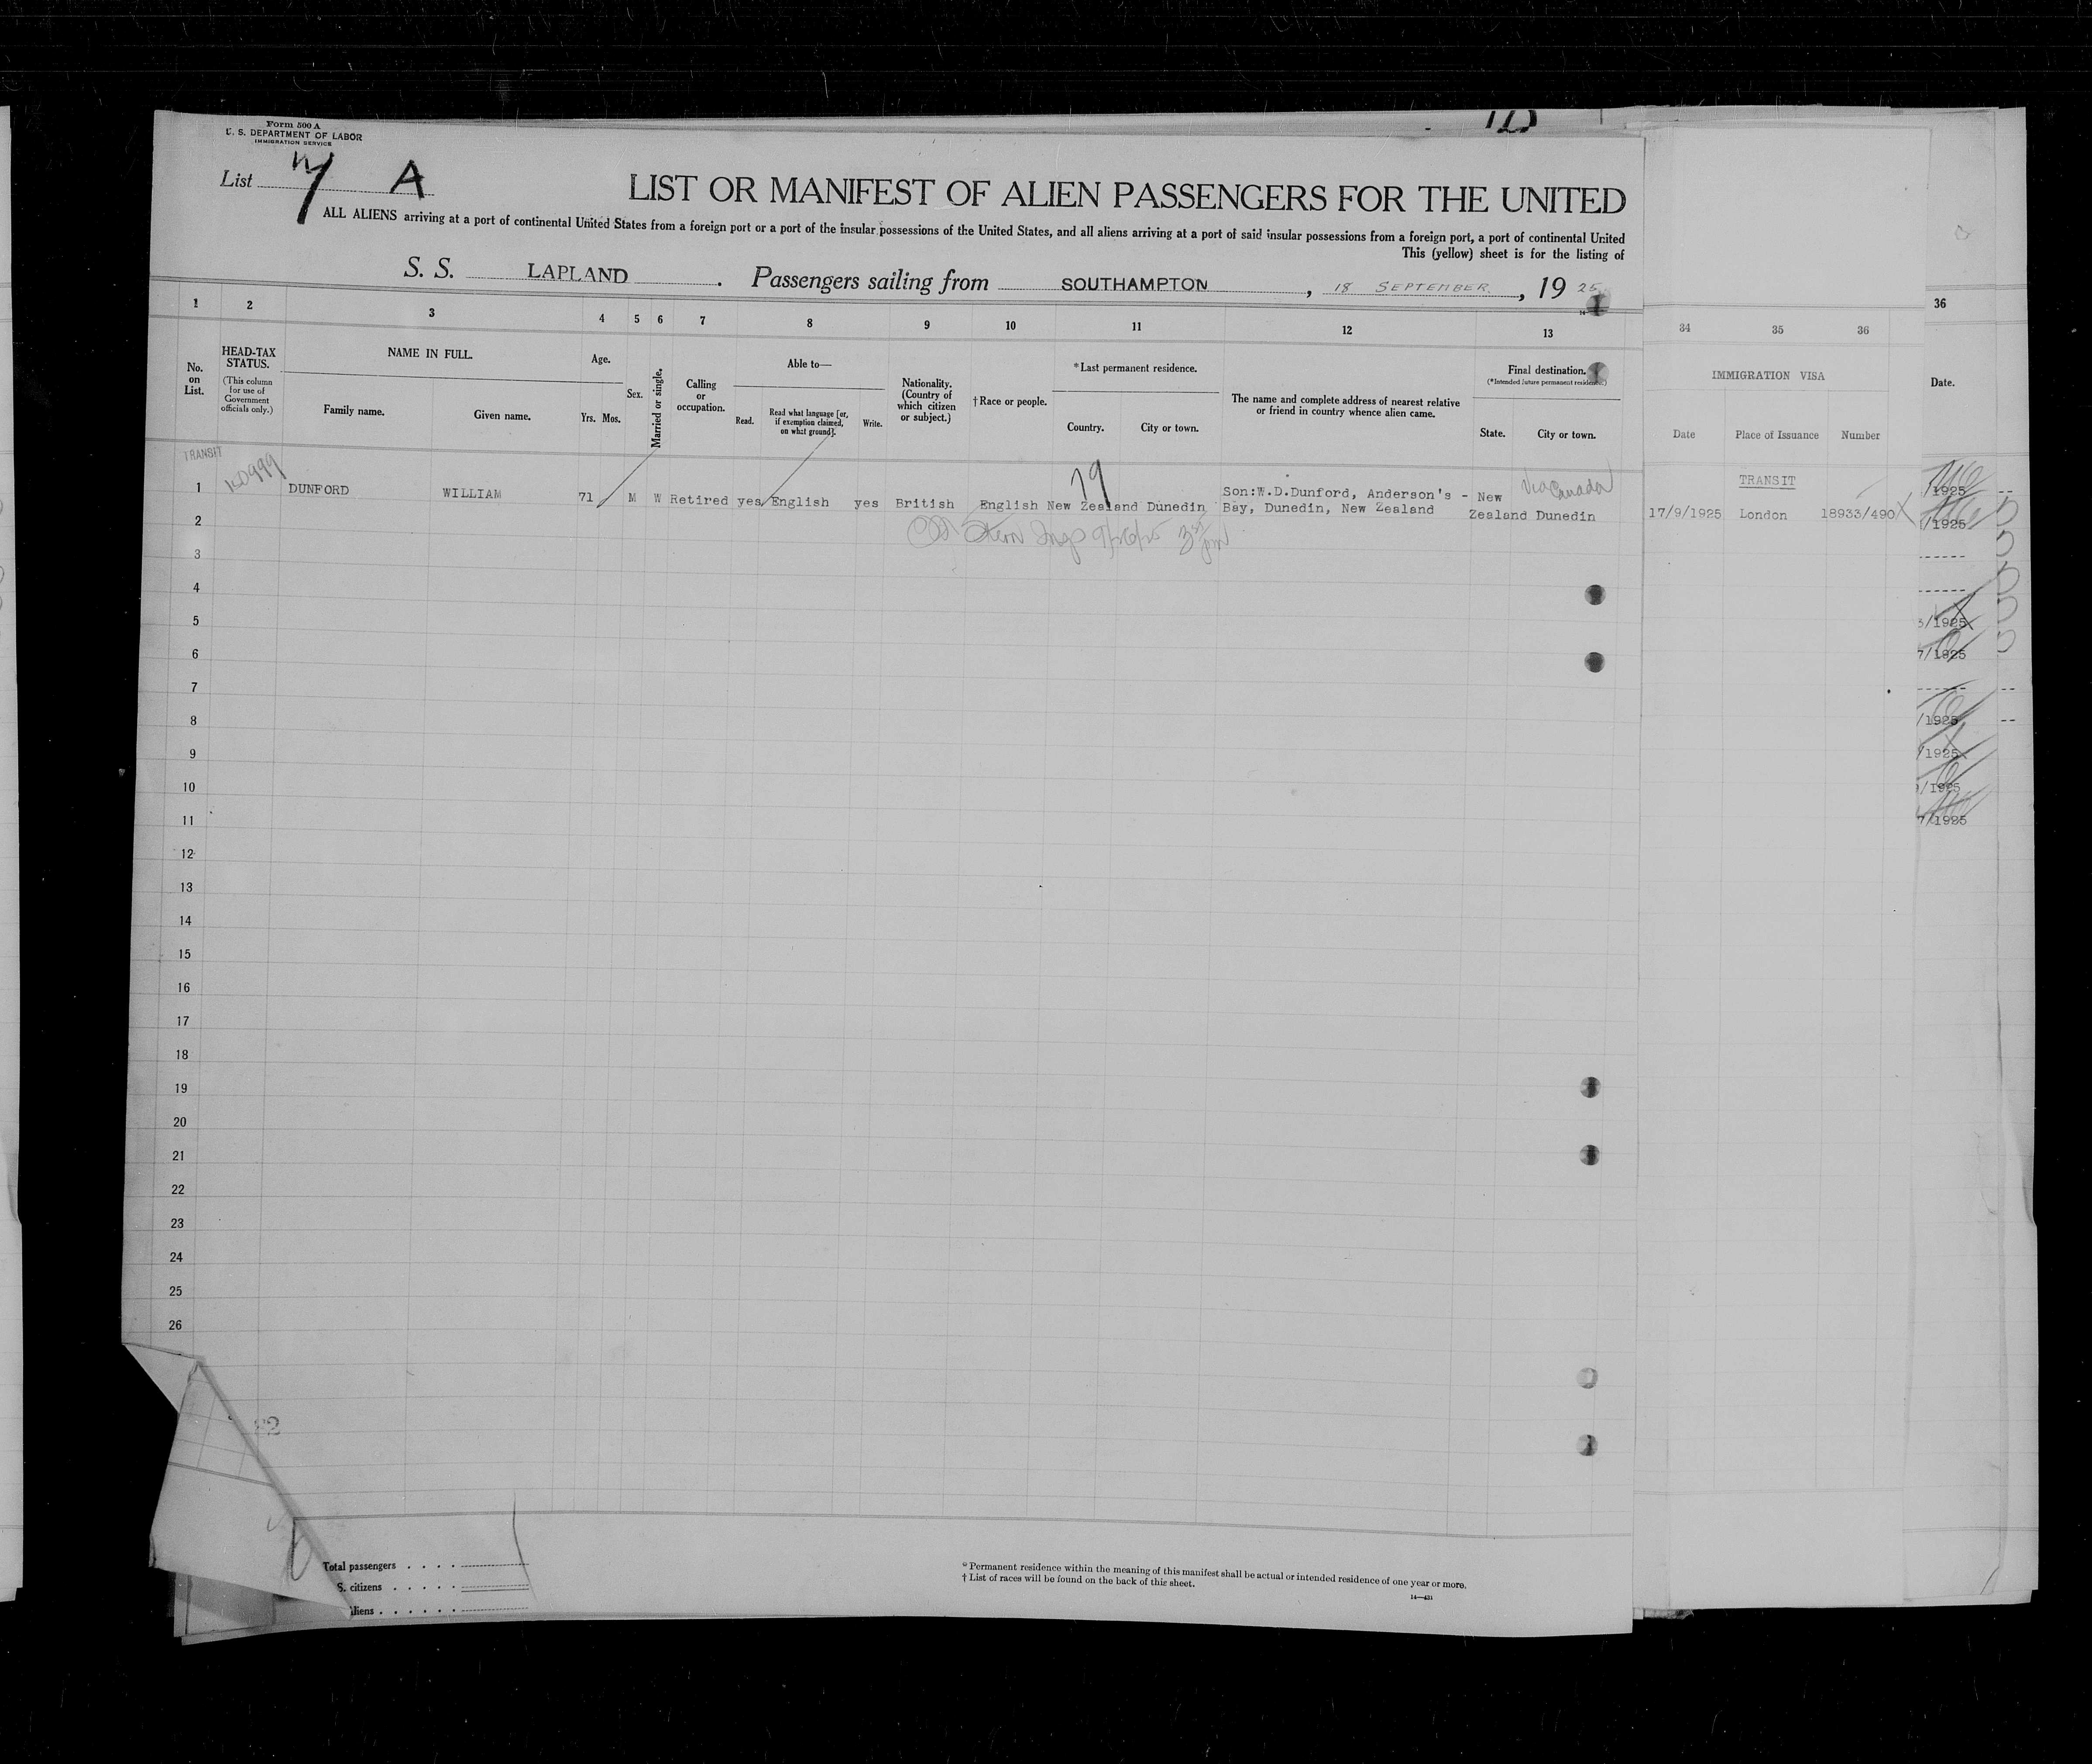 Form 500 A
U. S. DEPARTMENT OF LABOR
IMMIGRATION SERVICE
List A
LIST OR MANIFEST OF ALIEN PASSENGERS FOR THE UNITED
ALL ALIENS arriving at a port of continental United States from a foreign port or a port of the insular possessions of the United States, and all aliens arriving at a port of said insular possessions from a foreign port, a port of continental United
This (yellow) sheet is for the listing of
S. S. LAPLAND. Passengers sailing from SOUTHAMPTON, 18 SEPTEMBER, 1925
1 2 3 4 5 6 7 8 9 10 11 12 13
34 35 36
36
No. on List.
HEAD-TAX STATUS.
(This column for use of Government officials only.)
NAME IN FULL.
Family name. Given name.
Age.
Yrs. Mos.
Sex.
Married or single.
Calling or occupation.
Able to—
Read. Read what language [or, if exemption claimed, on what ground]. Write.
Nationality. (Country of which citizen or subject.)
†Race or people.
*Last permanent residence.
Country. City or town.
The name and complete address of nearest relative or friend in country whence alien came.
Final destination.
(*Intended future permanent residence.)
State. City or town.
IMMIGRATION VISA
Date Place of Issuance Number
Date.
TRANSIT
1 DUNFORD WILLIAM 71 M W Retired yes English yes British English New Zealand Dunedin Son:W.D.Dunford, Anderson's - Bay, Dunedin, New Zealand New Zealand Dunedin
Via Canada
TRANSIT
17/9/1925 London 18933/490
/1925
/1925
/1925
7/1925
/1925
/1925
/1925
7/1925
2
3
4
5
6
7
8
9
10
11
12
13
14
15
16
17
18
19
20
21
22
23
24
25
26
Total passengers
S. citizens
liens
*Permanent residence within the meaning of this manifest shall be actual or intended residence of one year or more.
†List of races will be found on the back of this sheet.
14—431